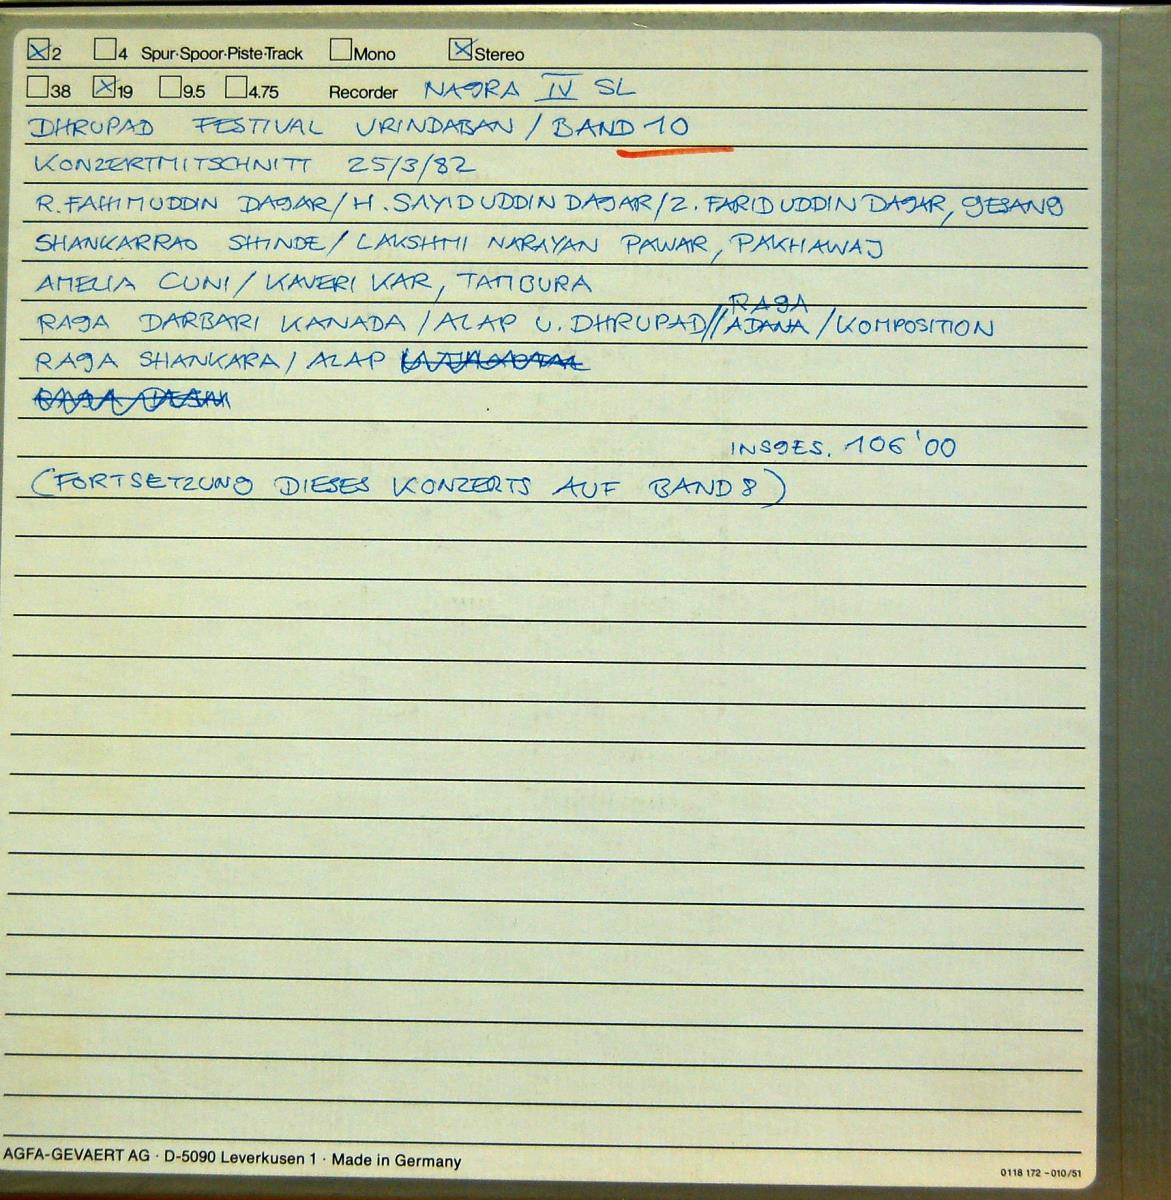 ☒2 ☐4 Spur·Spoor·Piste·Track ☐Mono ☒Stereo
☐38 ☒19 ☐9.5 ☐4.75 Recorder NAGRA IV SL
DHRUPAD FESTIVAL VRINDABAN / BAND 10
KONZERTMITSCHNITT 25/3/82
R. FAHIMUDDIN DAGAR / H. SAYIDUDDIN DAGAR / Z. FARIDUDDIN DAGAR, GESANG
SHANKARRAO SHINDE / LAKSHMI NARAYAN PAWAR, PAKHAWAJ
AMELIA CUNI / KAVERI KAR, TAMBURA
RAGA DARBARI KANADA / ALAP U. DHRUPAD // RAGA ADANA / KOMPOSITION
RAGA SHANKARA / ALAP
INSGES. 106'00
(FORTSETZUNG DIESES KONZERTS AUF BAND 8)
AGFA-GEVAERT AG · D-5090 Leverkusen 1 · Made in Germany
0118 172 - 010/51